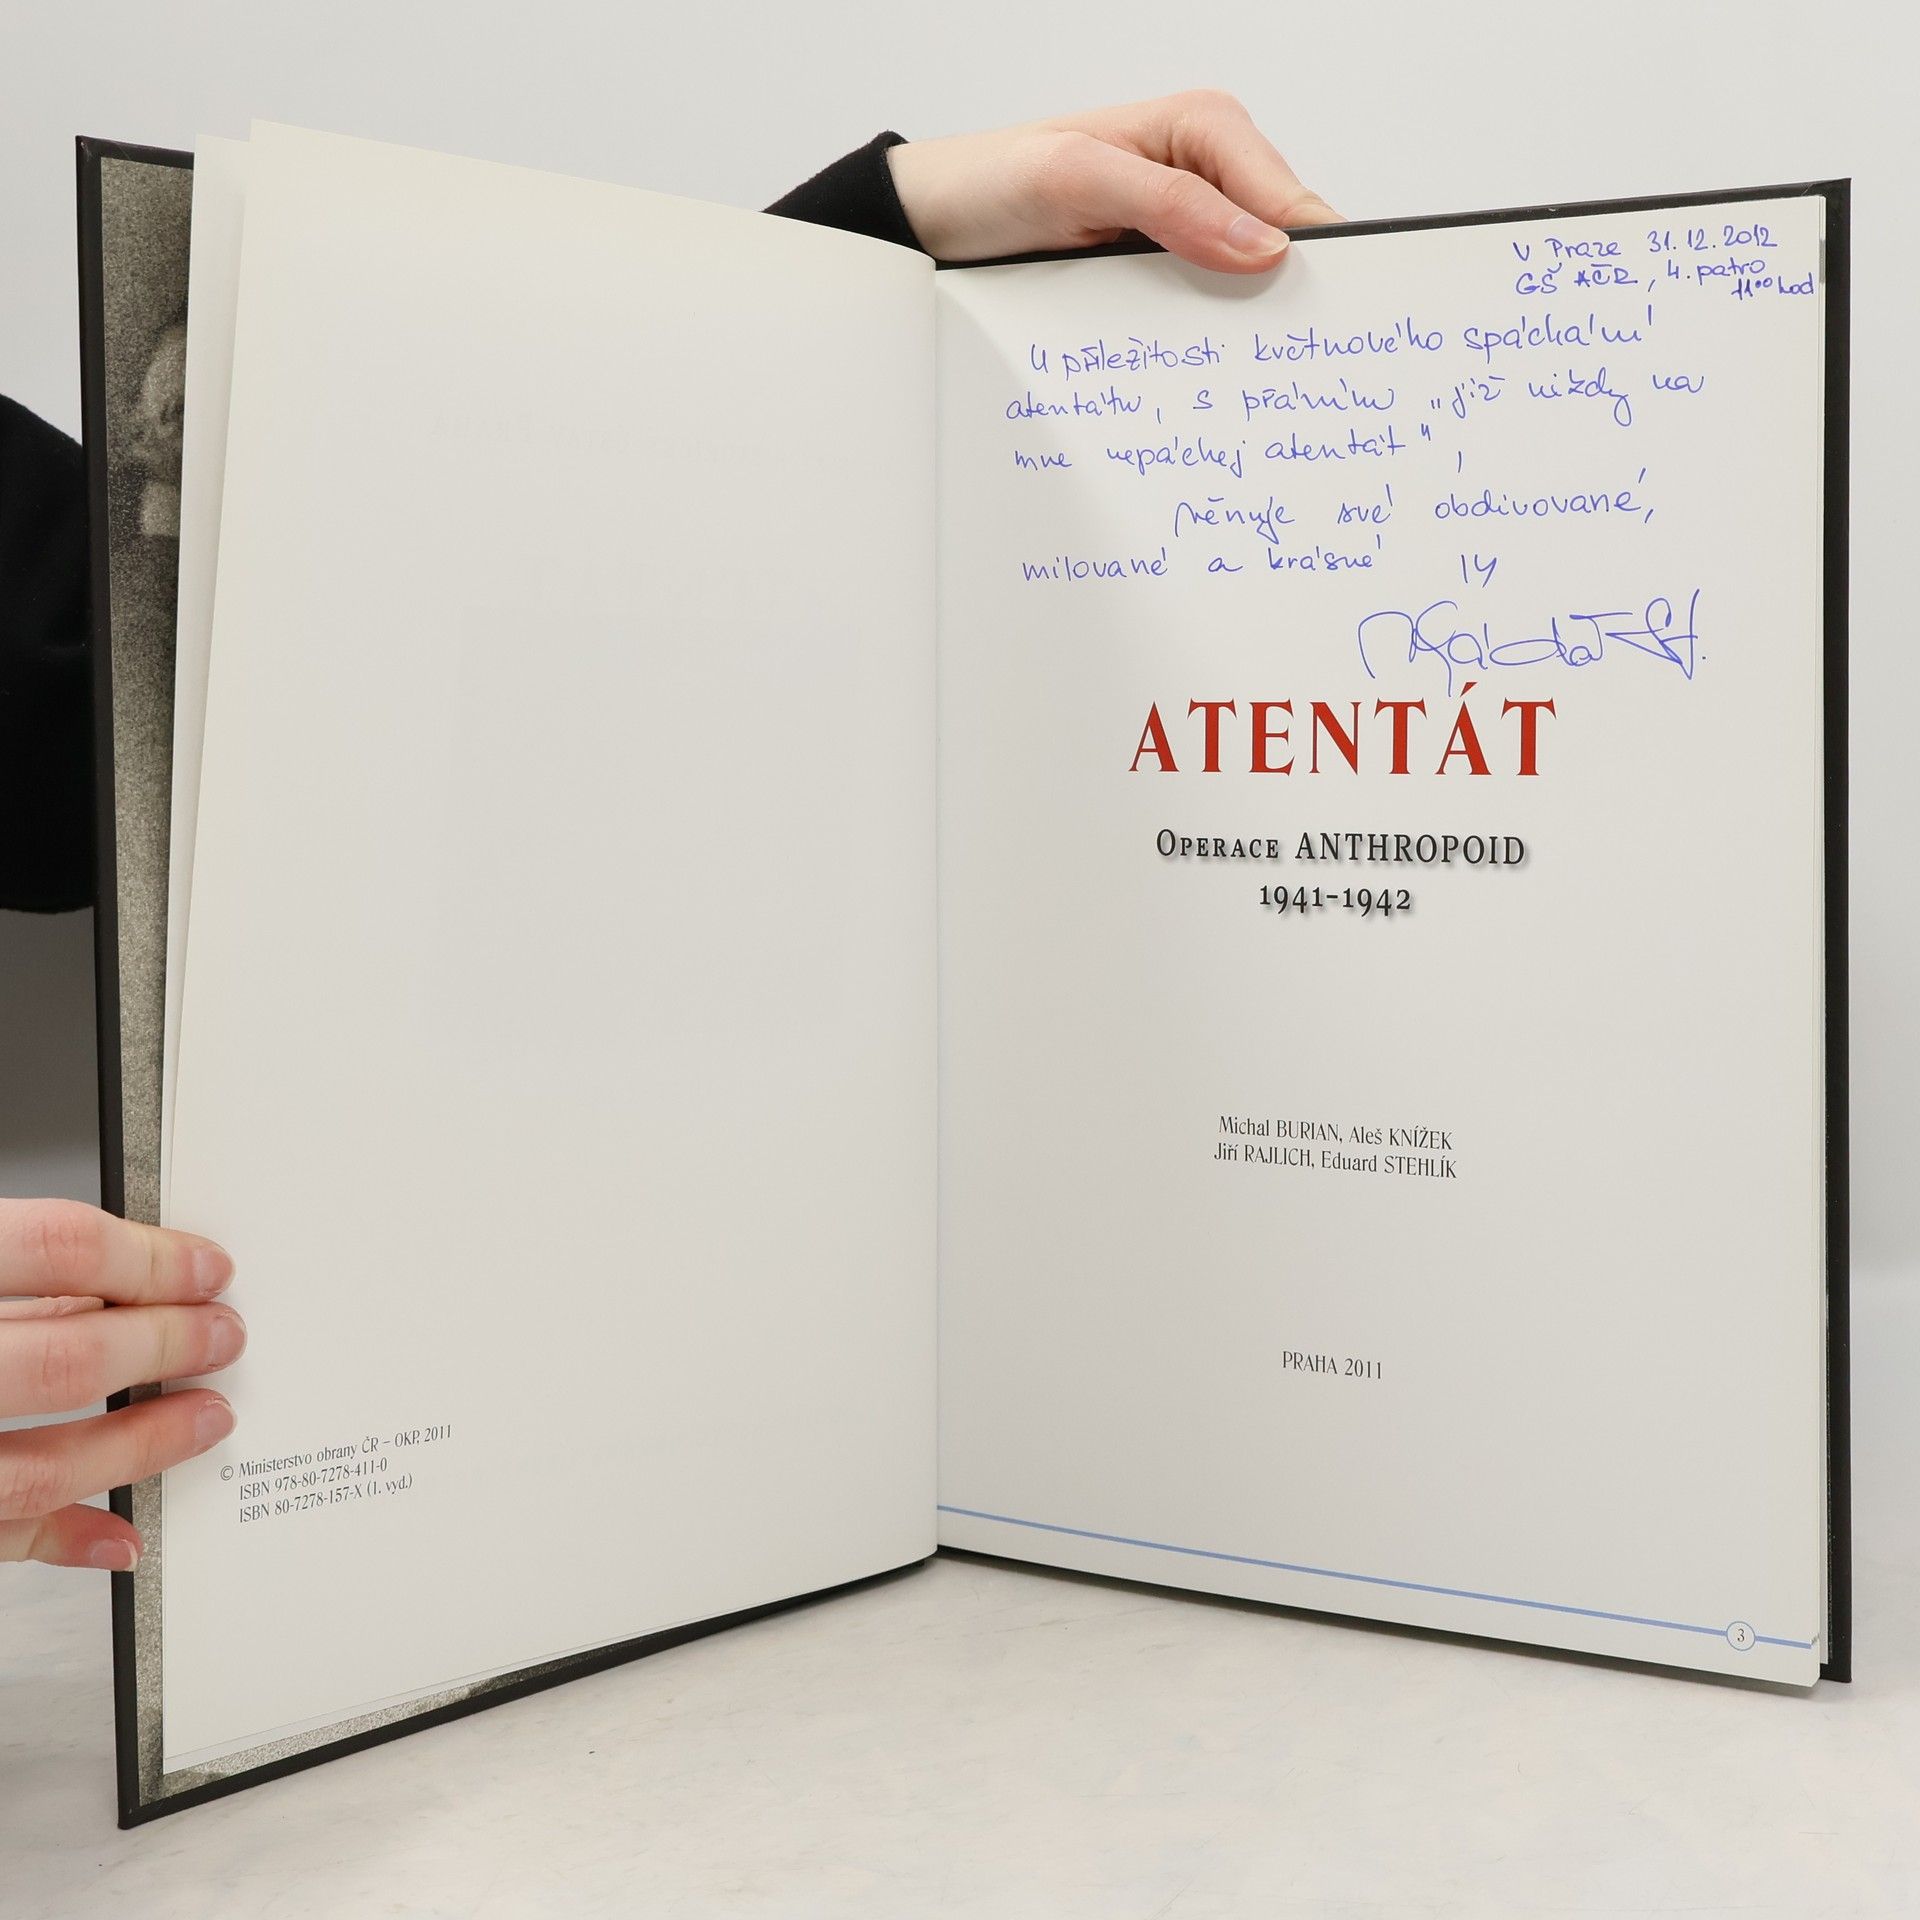 V Praze 31.12.2012
GŠ AČR, 4. patro
11⁰⁰ hod
U příležitosti květnového spáchání
atentátu, s přáním „již nikdy na
mne nepáchej atentát",
věnuje své obdivované,
milované a krásné
ATENTÁT
OPERACE ANTHROPOID
1941-1942
Michal BURIAN, Aleš KNÍŽEK
Jiří RAJLICH, Eduard STEHLÍK
PRAHA 2011
© Ministerstvo obrany ČR – OKP, 2011
ISBN 978-80-7278-411-0
ISBN 80-7278-157-X (1. vyd.)
3